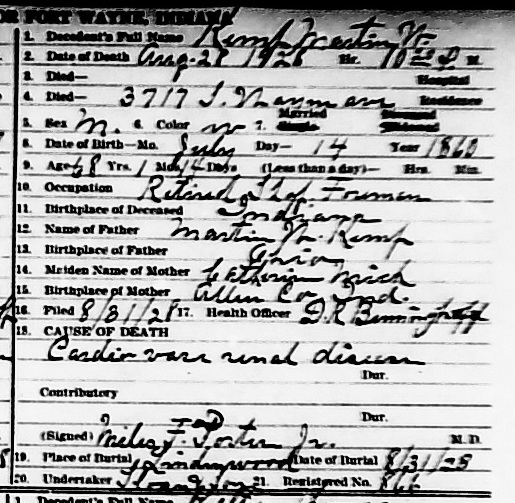 OR FORT WAYNE, INDIANA
1. Decedent's Full Name Kemp Martin W.
2. Date of Death Aug-28 1928 Hr. 10 P M.
3. Died— Hospital
4. Died— 3717 S. Wayne ave Residence
5. Sex M. 6. Color w 7. Married Single Divorced Widowed
8. Date of Birth—Mo. July Day— 14 Year 1860
9. Age 68 Yrs. 1 Mo. 14 Days (Less than a day)— Hrs. Min.
10. Occupation Retired Shop Foreman
11. Birthplace of Deceased Indiana
12. Name of Father Martin W. Kemp
13. Birthplace of Father Ohio
14. Maiden Name of Mother Catherine
15. Birthplace of Mother Allen Co. Ind.
16. Filed 8/31/28 17. Health Officer D.R.
18. CAUSE OF DEATH
Cardio vasc renal disease
Dur.
Contributory
Dur.
(Signed) Miles F. Porter Jr. M. D.
19. Place of Burial Lindenwood Date of Burial 8/31/28
20. Undertaker 21. Registered No.
1. Decedent's Full Name